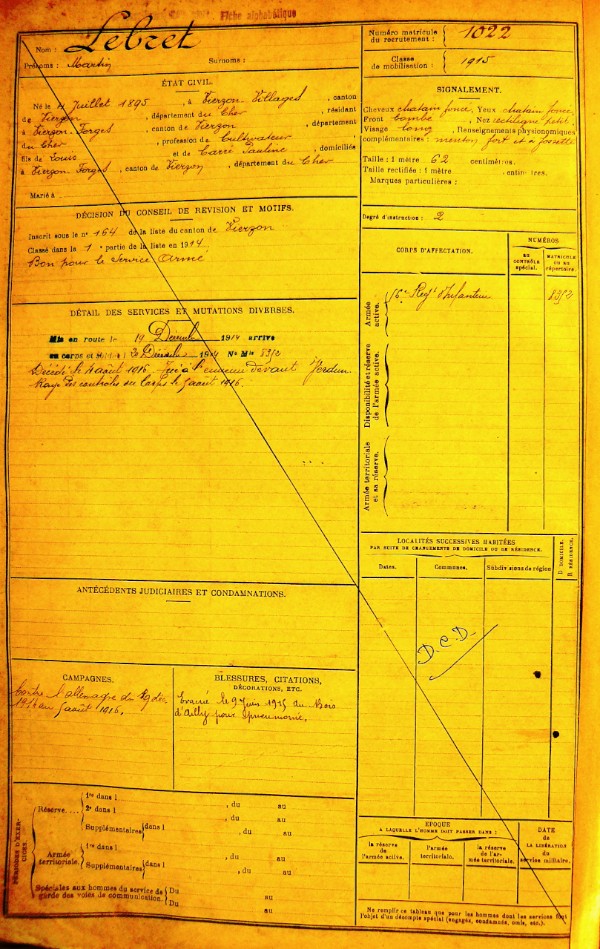 Fiche alphabétique
Nom : Lebret
Prénoms : Martin Surnoms :
Numéro matricule du recrutement : 1022
Classe de mobilisation : 1915
ÉTAT CIVIL.
Né le 4 Juillet 1895, à Vierzon Villages, canton
de Vierzon, département du Cher, résidant
à Vierzon Forges, canton de Vierzon, département
du Cher, profession de Cultivateur
fils de Louis et de Carré Pauline, domiciliés
à Vierzon Forges, canton de Vierzon, département du Cher
Marié à
DÉCISION DU CONSEIL DE REVISION ET MOTIFS.
Inscrit sous le nº 164 de la liste du canton de Vierzon
Classé dans la 1e partie de la liste en 1914.
Bon pour le Service Armé
DÉTAIL DES SERVICES ET MUTATIONS DIVERSES.
Mis en route le 19 Décembre 1914 arrivé
au corps et 20 Décembre 1914 Nº Mle 8312
Décédé le 4 août 1916. Tué à l'ennemi devant Verdun.
Rayé des contrôles du Corps le 5 août 1916.
ANTÉCÉDENTS JUDICIAIRES ET CONDAMNATIONS.
CAMPAGNES.
Contre l'allemagne du 19 déc.
1914 au 5 août 1916.
BLESSURES, CITATIONS,
DÉCORATIONS, ETC.
Evacué le 9 Juin 1915 du Bois
d'Ailly pour pneumonie.
PÉRIODES D'EXERCICES
Réserve....
1re dans l , du au
2e dans l , du au
Supplémentaires dans l , du au
Armée territoriale.
1re dans l , du au
Supplémentaires dans l , du au
Spéciales aux hommes du service de garde des voies de communication.
Du au
Du au
SIGNALEMENT.
Cheveux chatain foncé, Yeux chatain foncé
Front bombé, Nez rectiligne petit
Visage long, Renseignements physionomiques
complémentaires : menton fort et à fossette
Taille : 1 mètre 62 centimètres.
Taille rectifiée : 1 mètre centimètres.
Marques particulières :
Degré d'instruction : 2
CORPS D'AFFECTATION.
NUMÉROS
AU CONTRÔLE spécial.
MATRICULE OU AU répertoire.
Armée active.
Regt d'Infanterie 8312
Disponibilité et réserve de l'armée active.
Armée territoriale et sa réserve.
LOCALITÉS SUCCESSIVES HABITÉES
PAR SUITE DE CHANGEMENTS DE DOMICILE OU DE RÉSIDENCE.
Dates. Communes. Subdivisions de région
D. DOMICILE.
R. RÉSIDENCE.
D.C.D.
ÉPOQUE
À LAQUELLE L'HOMME DOIT PASSER DANS :
la réserve de l'armée active.
l'armée territoriale.
la réserve de l'armée territoriale.
DATE
de
LA LIBÉRATION
du
service militaire.
Ne remplir ce tableau que pour les hommes dont les services font
l'objet d'un décompte spécial (engagés, omis, etc.).